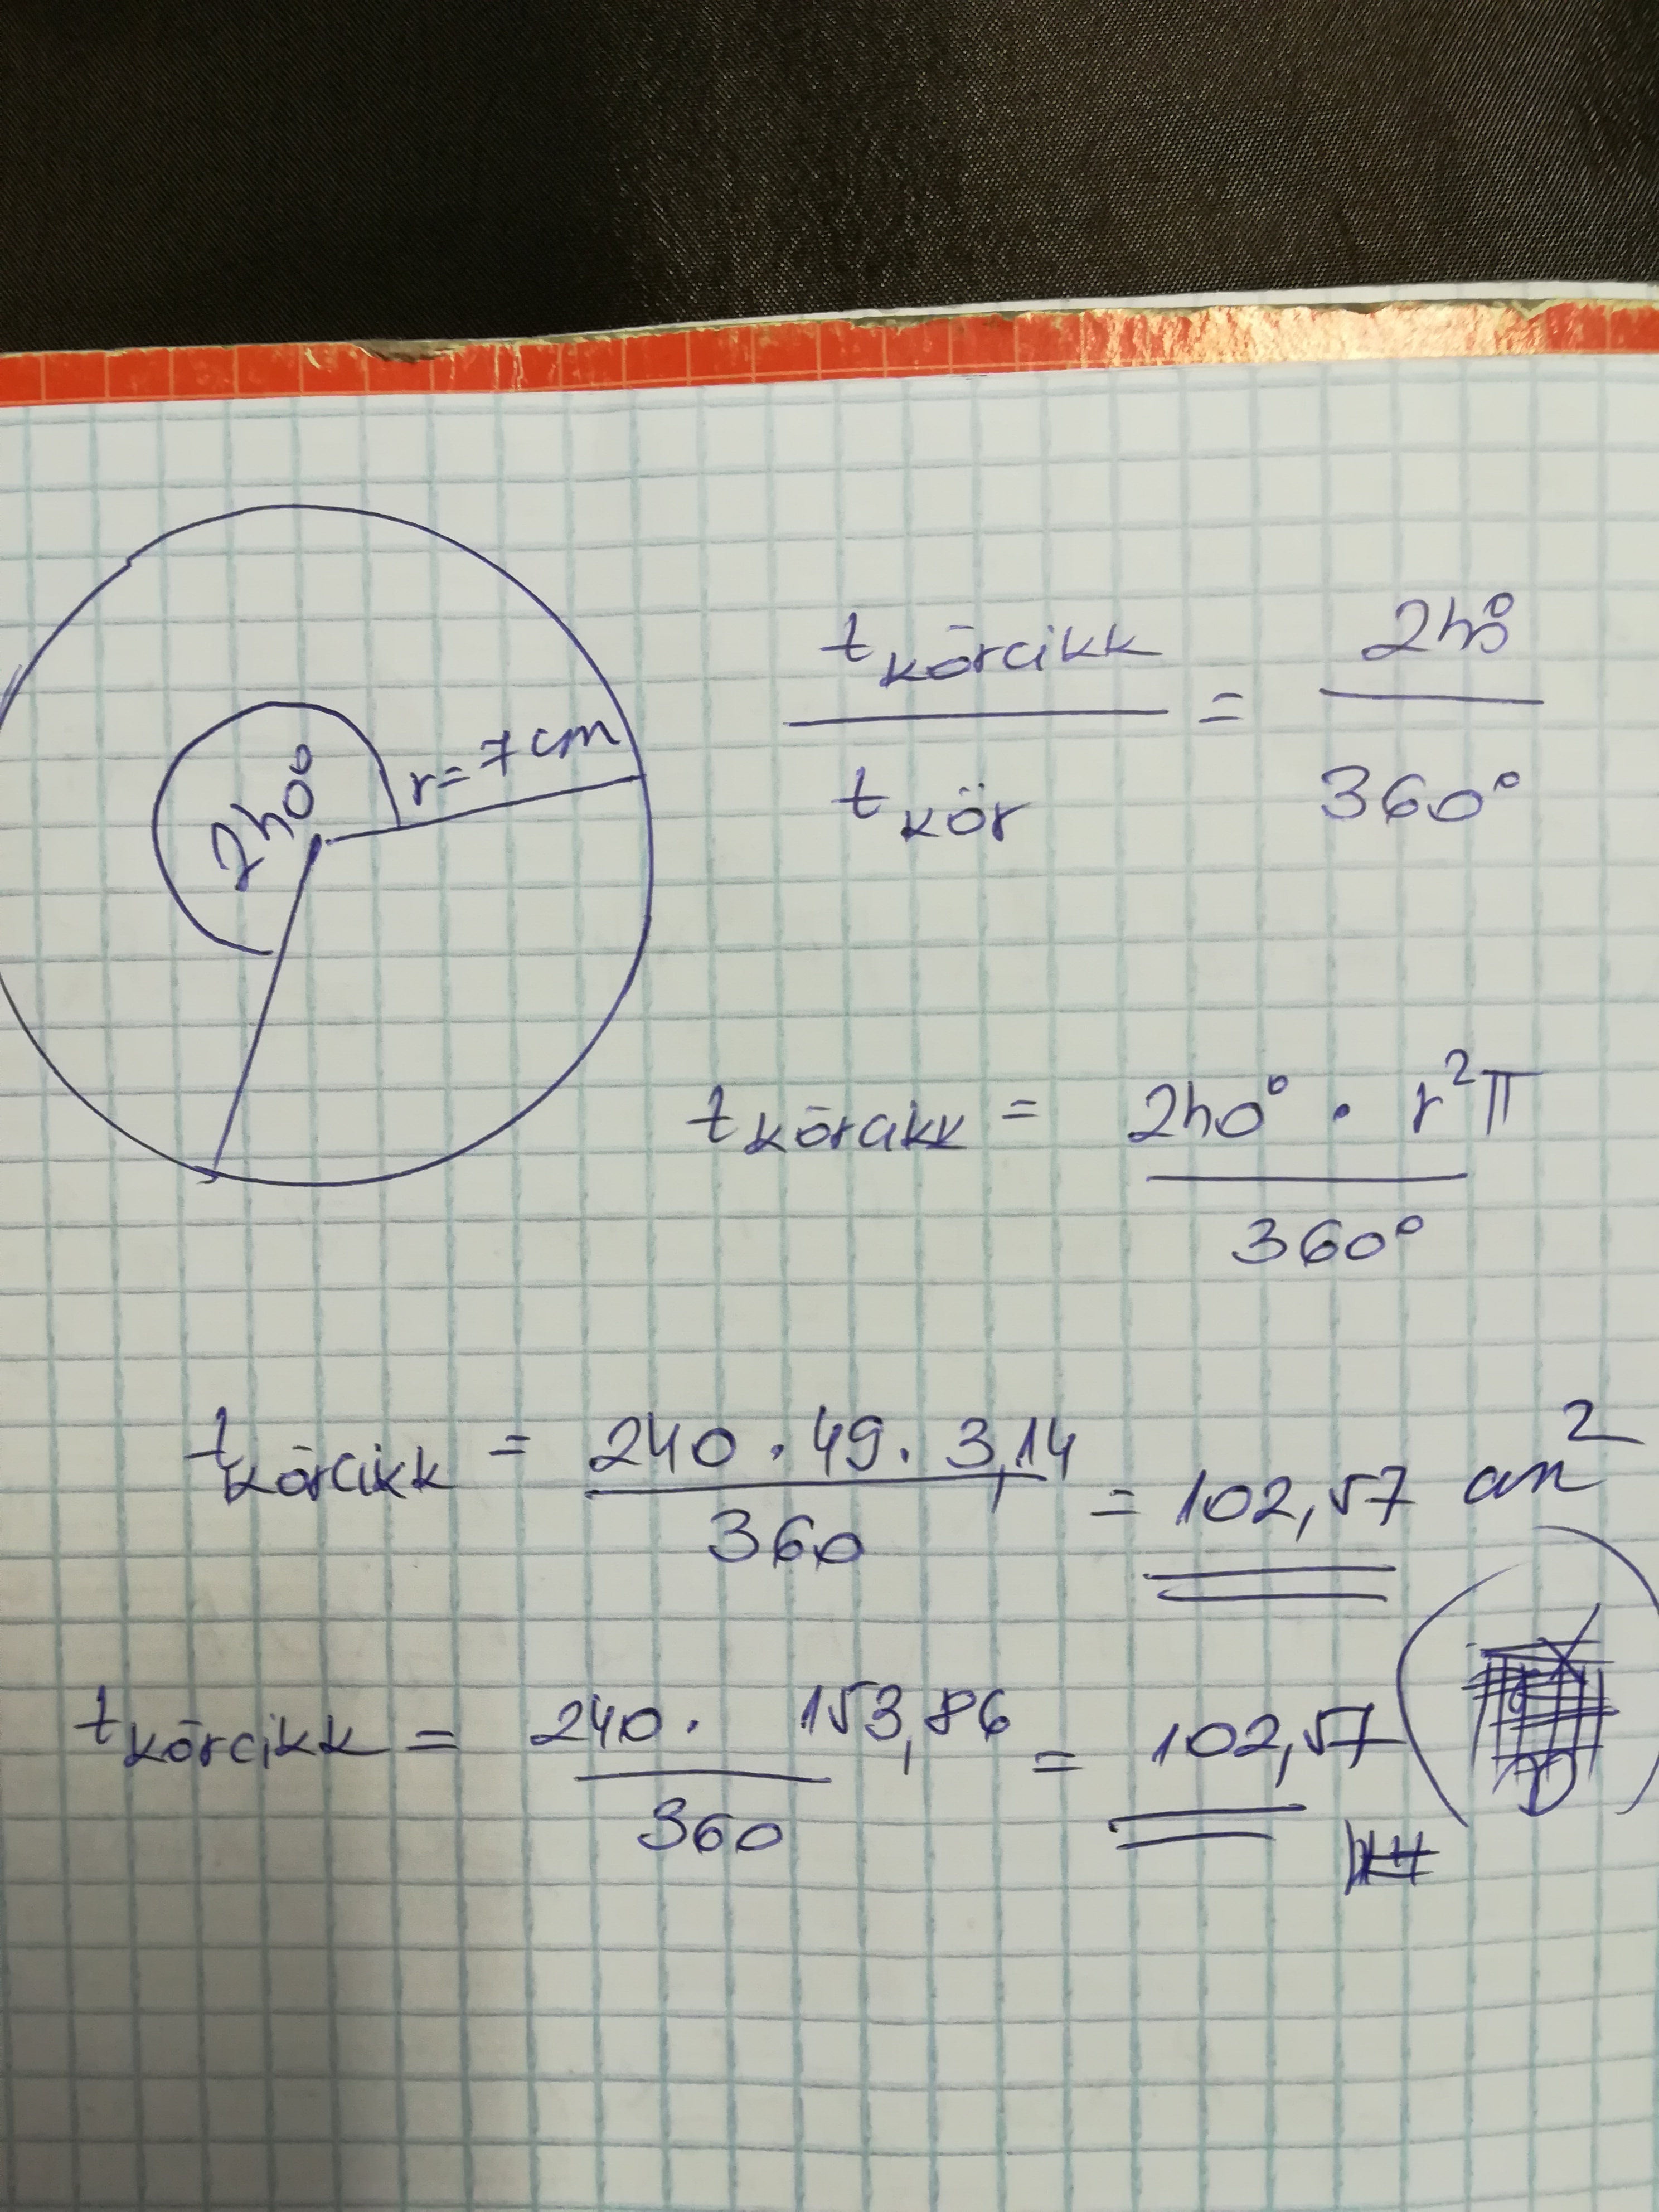 240°
r = 7 cm
t körcikk / t kör = 240° / 360°
t körcikk = 240° · r²π / 360°
t körcikk = 240 · 49 · 3,14 / 360 = 102,57 cm²
t körcikk = 240 · 153,86 / 360 = 102,57